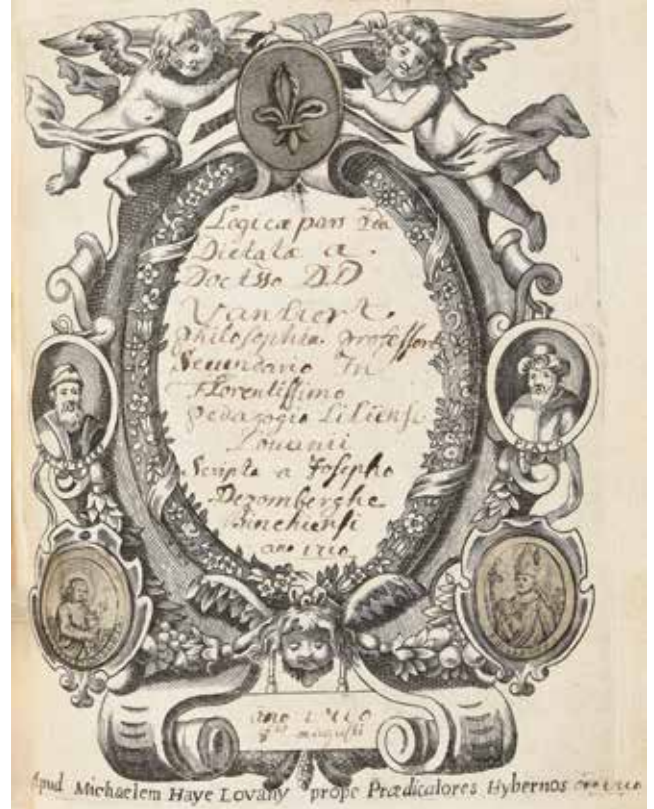 Logicæ pars 2da
Dictata a
Doctsso D.D
Vanliert
Philosophiæ professore
Secundario In
Florentissimo
pedagogio Liliensi
Lovanii
Scripta a Josepho
Dezomberghe
Binchiensi
ano 1710
ano 1710
augusti
Apud Michaelem Haye Lovany prope Prædicatores Hybernos